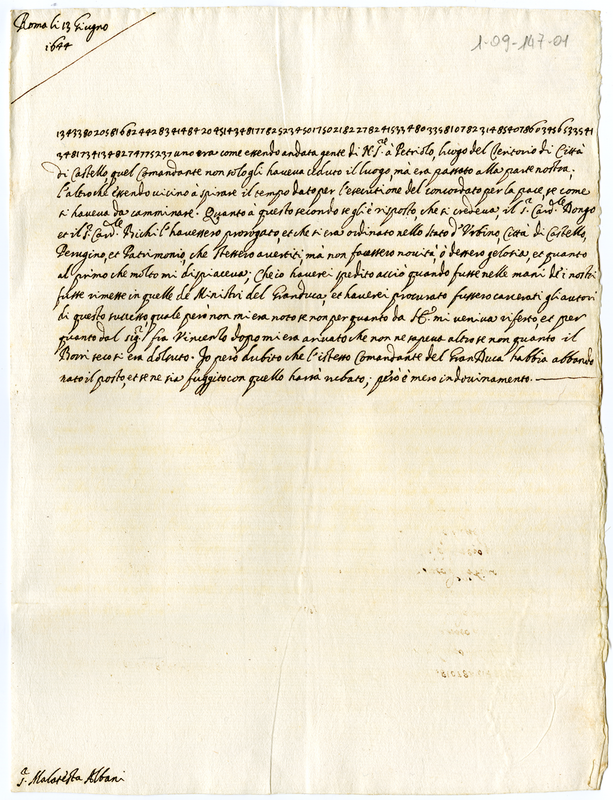 Roma li 13 Giugno
1644
1-09-147-01
uno era come essendo andata gente di N. S.re à Petriolo, luogo del Teritorio di Città
di Castello, quel Comandante non solo gli haveva ceduto il luogo, mà era passato alla parte nostra,
l'altro che essendo vicino à spirare il tempo dato per l'essecutione del concordato per la pace, se come
si haveva da camminare. Quanto à questo secondo se gli è risposto, che si credeva, il S.r Card.le Dongo
et il S.r Card.le Bichi l'havessero prorogato, et che si era ordinato nello Stato d'Urbino, Città di Castello,
Perugino, et Patrimonio, che stessero avertiti, mà non facessero novità, ò dessero gelosia, et quanto
al primo che molto mi dispiaceva, Che io haverei spedito acciò quando fusse nelle mani de i nostri
fusse rimesse in quelle de Ministri del Granduca, et haverei procurato fussero carcerati gli autori
di questo successo quale però non mi era noto se non per quanto da mi veniva riferto et per
quanto dal sig.r fra Vincenzo dopo mi era avisato che non ne sapeva altro se non quanto il
Borri seco si era doluto. Io però dubito che l'istesso Comandante del GranDuca habbia abbando
nato il posto, et se ne sia fuggito con quello havrà rubato, però è mero indovinamento.
S.r Malatesta Albani